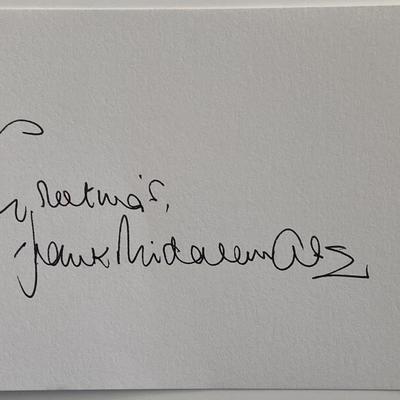 Greetings,
Frank Middlemass